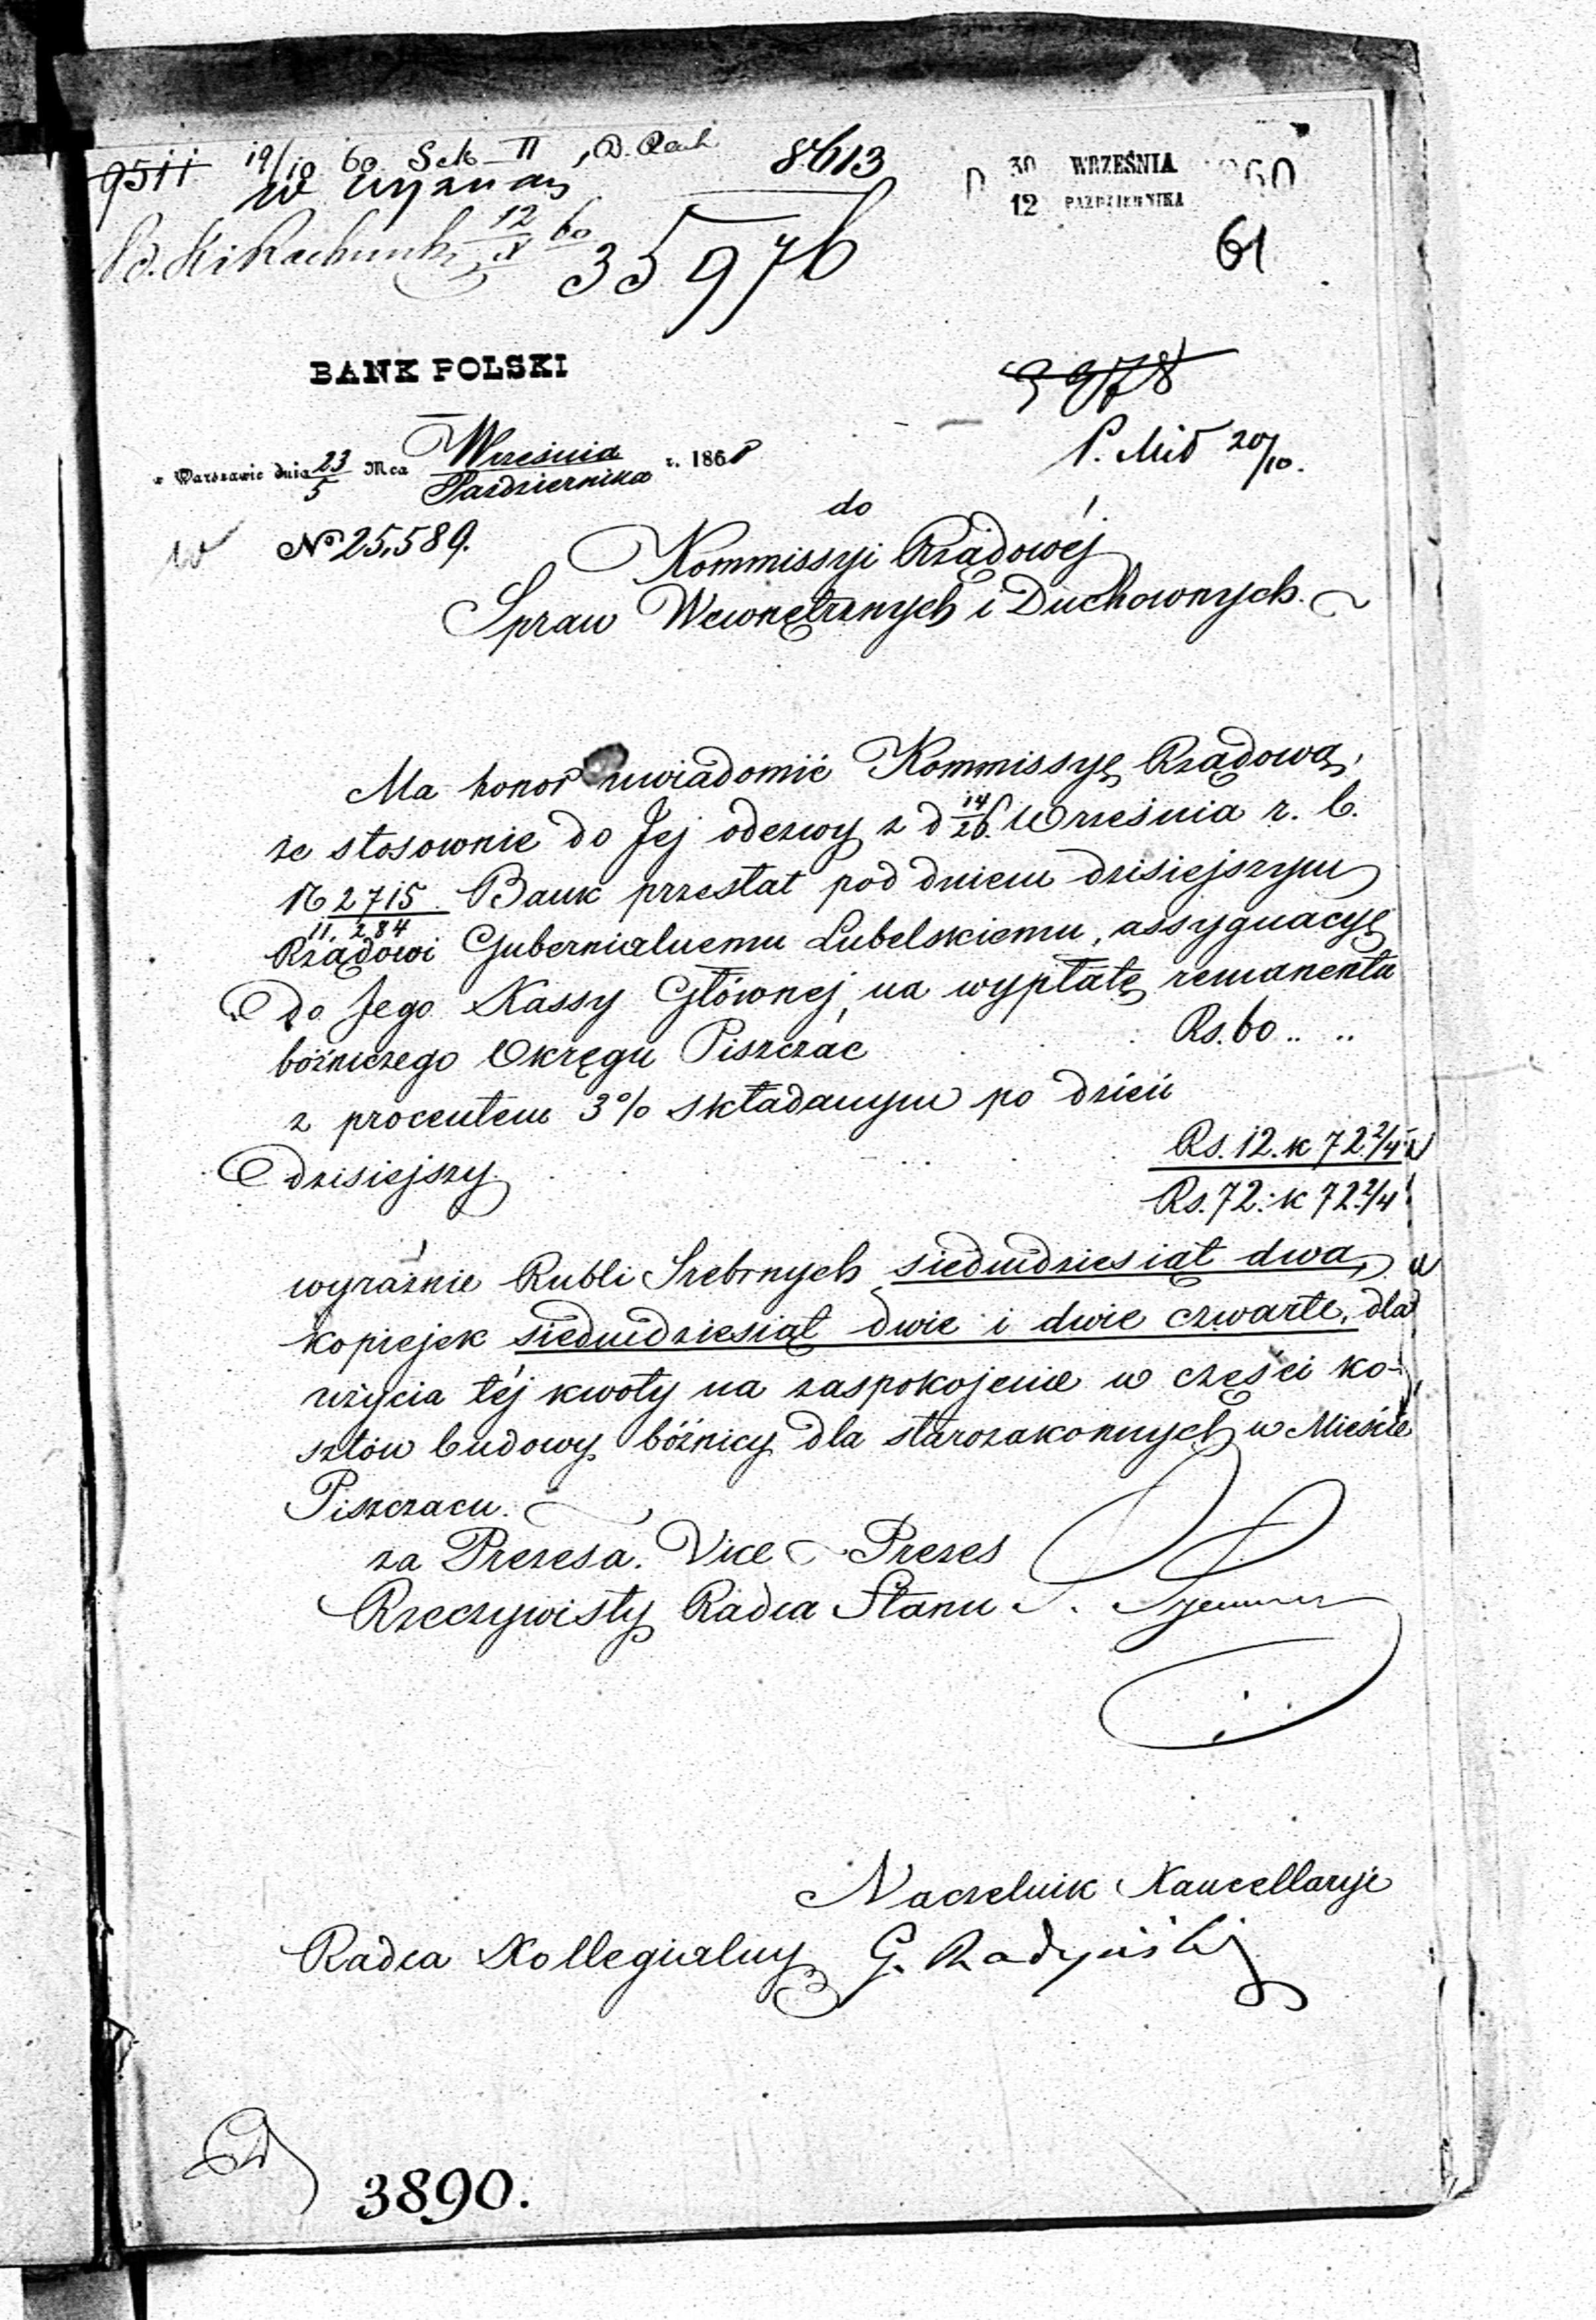 9511 19/10 60 Sek II, D. Rach 8613
W wyznań
35976
30 WRZEŚNIA 860
12 PAŹDZIERNIKA
61
BANK POLSKI
w Warszawie dnia 23/5 Mca Września/Października r. 1860
P. Mił 20/10.
No 25,589.
do
Kommissyi Rządowéj
Spraw Wewnętrznych i Duchownych.
Ma honor uwiadomić Kommissyę Rządową,
że stosownie do Jej odezwy z d 14/26 Września r. b.
No 2715/11,284 Bank przesłał pod dniem dzisiejszym
Rządowi Gubernialnemu Lubelskiemu, assygnacyę
do Jego Kassy Głównej, na wypłatę remanentu
bóżniczego Okręgu Piszczać Rs. 60 „ „
z procentem 3% składanym po dzień
dzisiejszy Rs. 12. k 72 2/4
Rs. 72. k 72 2/4
wyraźnie Rubli Srebrnych siedmdziesiąt dwa,
kopiejek siedmdziesiąt dwie i dwie czwarte, dla
użycia téj kwoty na zaspokojenie w części ko-
sztów budowy bóżnicy dla starozakonnych w Mieście
Piszczacu.
za Prezesa. Vice Prezes
Rzeczywisty Radca Stanu
Naczelnik Kancellaryi
Radca Kollegialny G. Radyński
3890.